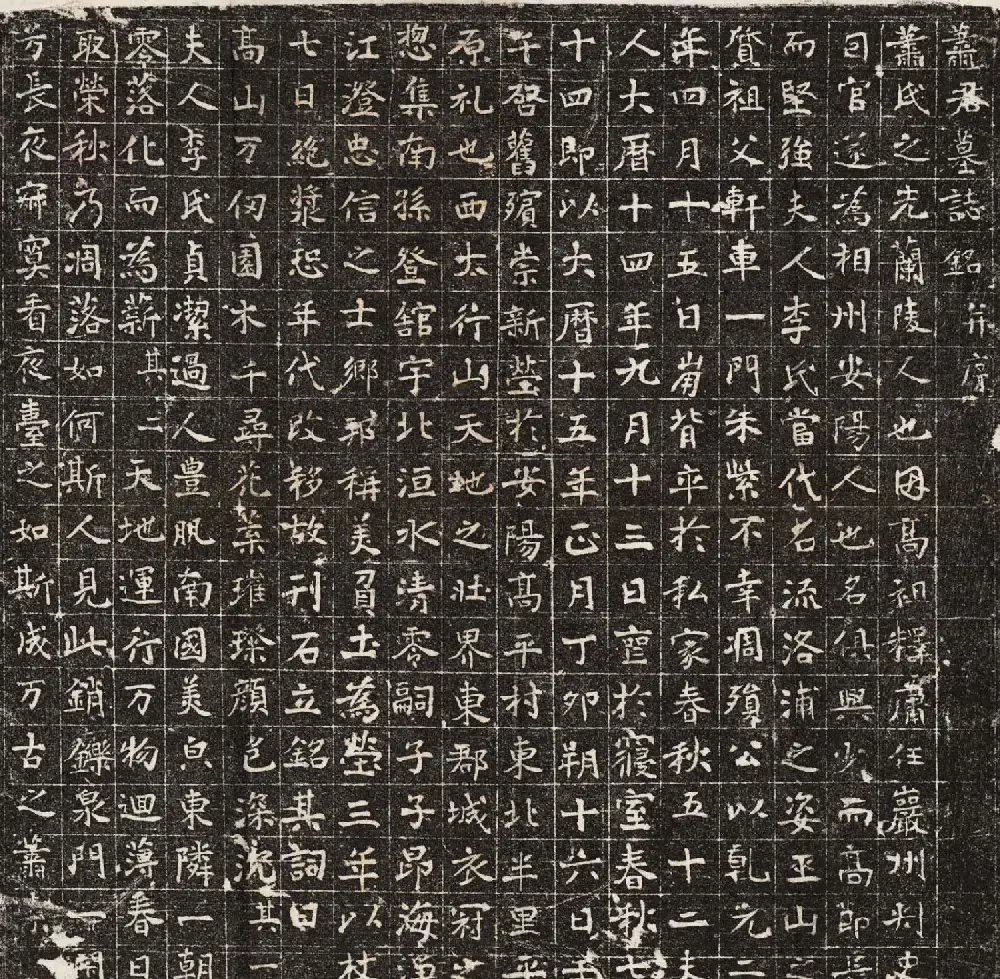 蕭君墓誌銘并序
蕭氏之先蘭陵人也因高祖釋庸任巖州刾
司官遂為相州安陽人也名興少而高節
而堅強夫人李氏當代名流洛浦之姿玉山
質祖父軒車一門朱紫不幸凋殞公以乹元二
年四月十五日崩背卒於私家春秋五十二夫
人大曆十四年九月十三日薨於寢室春秋七
十四即以大曆十五年正月丁卯朔十六日
午啓舊殯崇新塋於安陽高平村東北半里平
原礼也西太行山天地之壯界東郡城衣冠
惣集南孫登舘宇北洹水清零嗣子子昂海
江澄忠信之士鄉邦稱美負土為塋三年以杖
七日絶漿恐年代改移故刊石立銘其詞曰
高山万仞園木千尋花葉璀璨顔色深沉其一
夫人李氏貞潔過人豊肌南國美皃東隣一朝
零落化而為薪其二天地運行万物迴薄春日
取榮秋乃凋落如何斯人見此銷鑠泉門一閇
芳長夜寂寞看夜臺之如斯成万古之蕭